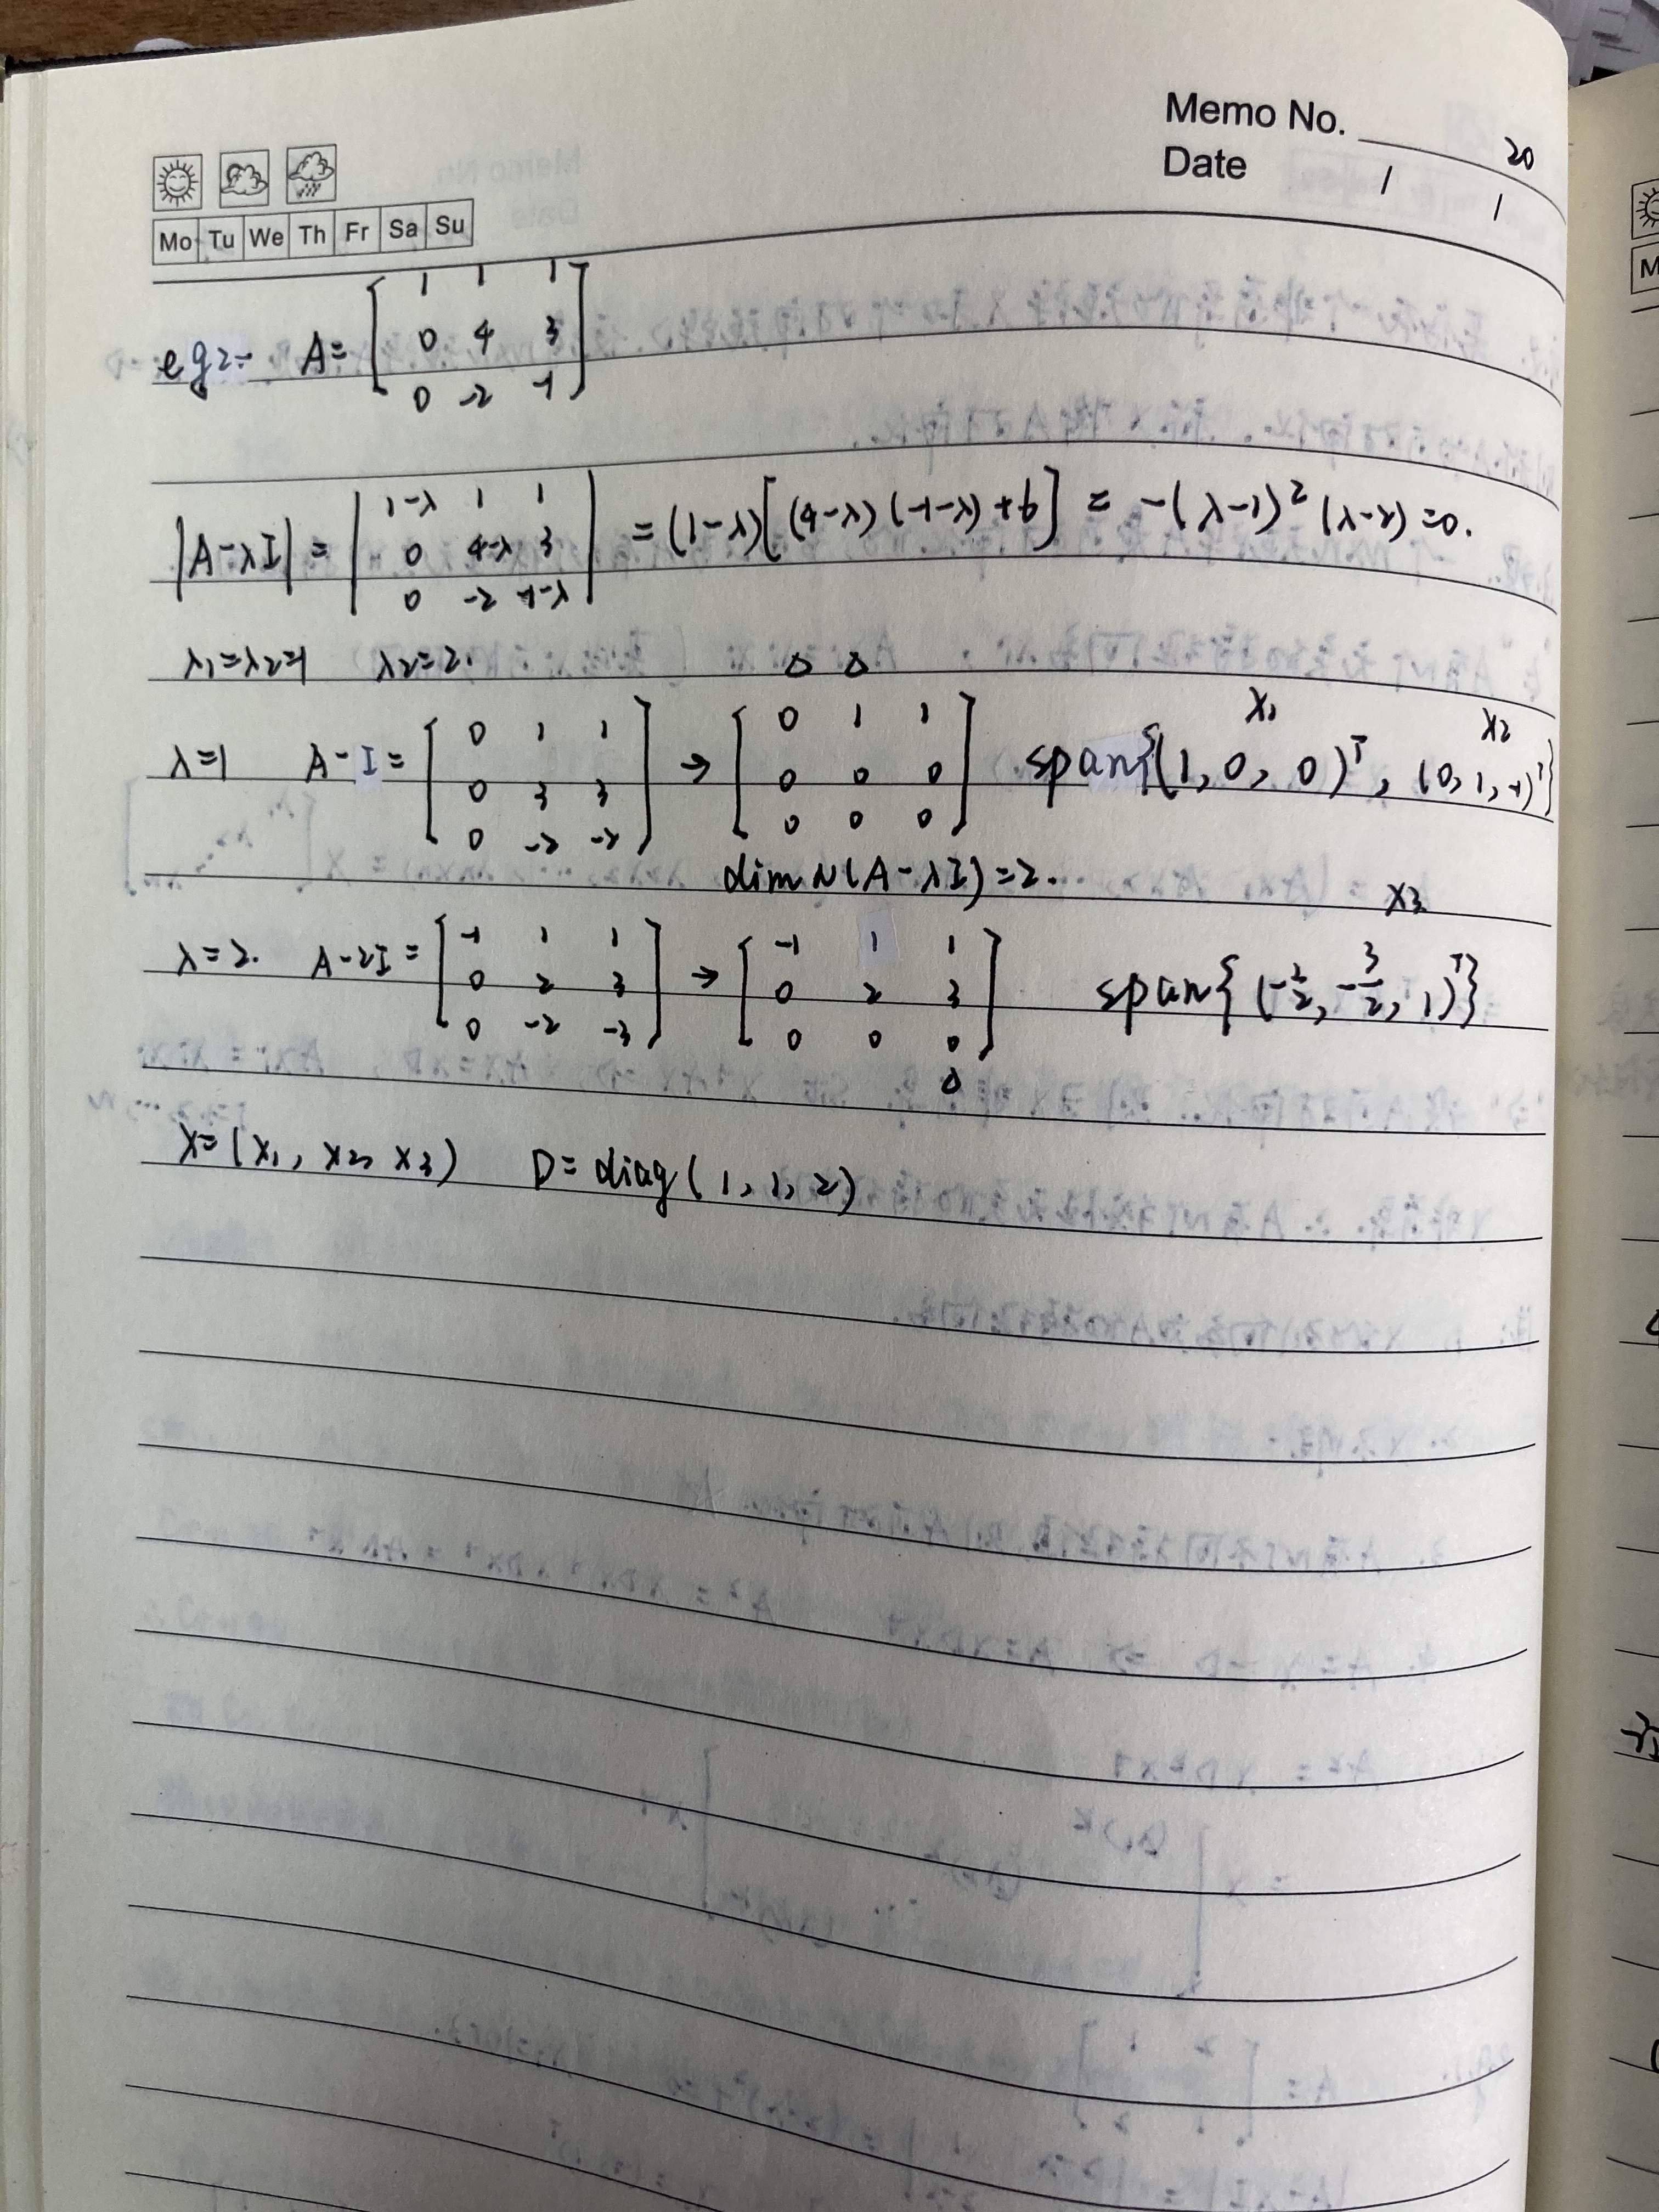 Memo No.
Date / / 20
Mo Tu We Th Fr Sa Su
eg2: A = [1 1 1
0 4 3
0 -2 -1]
|A-λI| = |1-λ 1 1
0 4-λ 3
0 -2 -1-λ| = (1-λ)[(4-λ)(-1-λ)+6] = -(λ-1)²(λ-2)=0.
λ₁=λ₂=1 λ₂=2. Δ Δ
λ=1 A-I = [0 1 1
0 3 3
0 -2 -2] → [0 1 1
0 0 0
0 0 0] span{(1, 0, 0)ᵀ, (0, 1, -1)ᵀ} x₁ x₂
dim N(A-λI)=2.
λ=2. A-2I = [-1 1 1
0 2 3
0 -2 -3] → [-1 1 1
0 2 3
0 0 0] span{(-1/2, -3/2, 1)ᵀ} x₃
Δ
X=(x₁, x₂, x₃) D=diag(1, 1, 2)